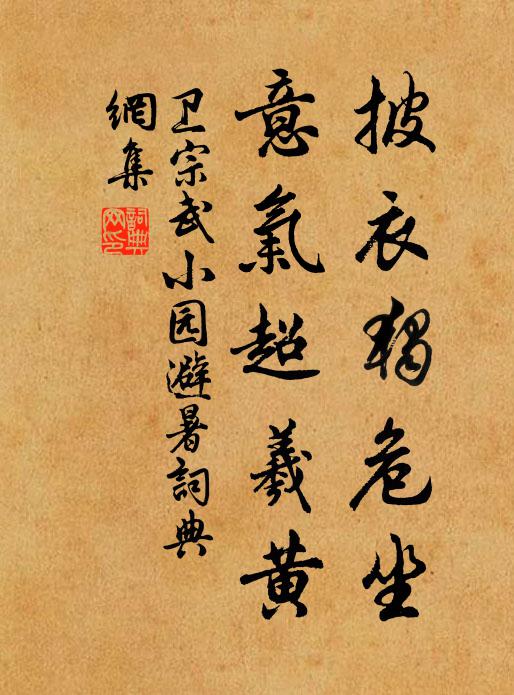 披衣独危坐
意氣超羲黄
卫宗武小园避暑詞典
網集
詞典網印